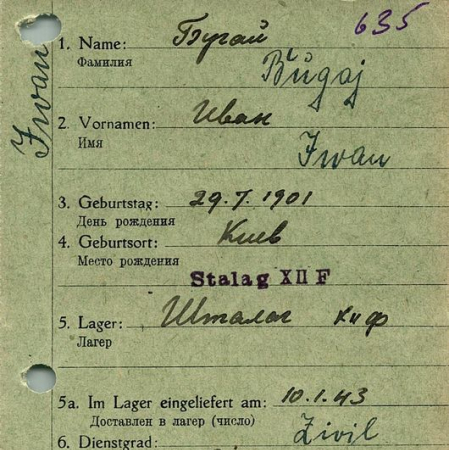 635
Iwan
1. Name: Бугай
Фамилия
Bŭgaj
2. Vornamen: Иван
Имя
Iwan
3. Geburtstag: 29.7.1901
День рождения
4. Geburtsort: Киев
Место рождения
Stalag XII F
5. Lager: Шталаг
Лагер
5a. Im Lager eingeliefert am: 10.1.43
Доставлен в лагер (число)
Zivil
6. Dienstgrad: